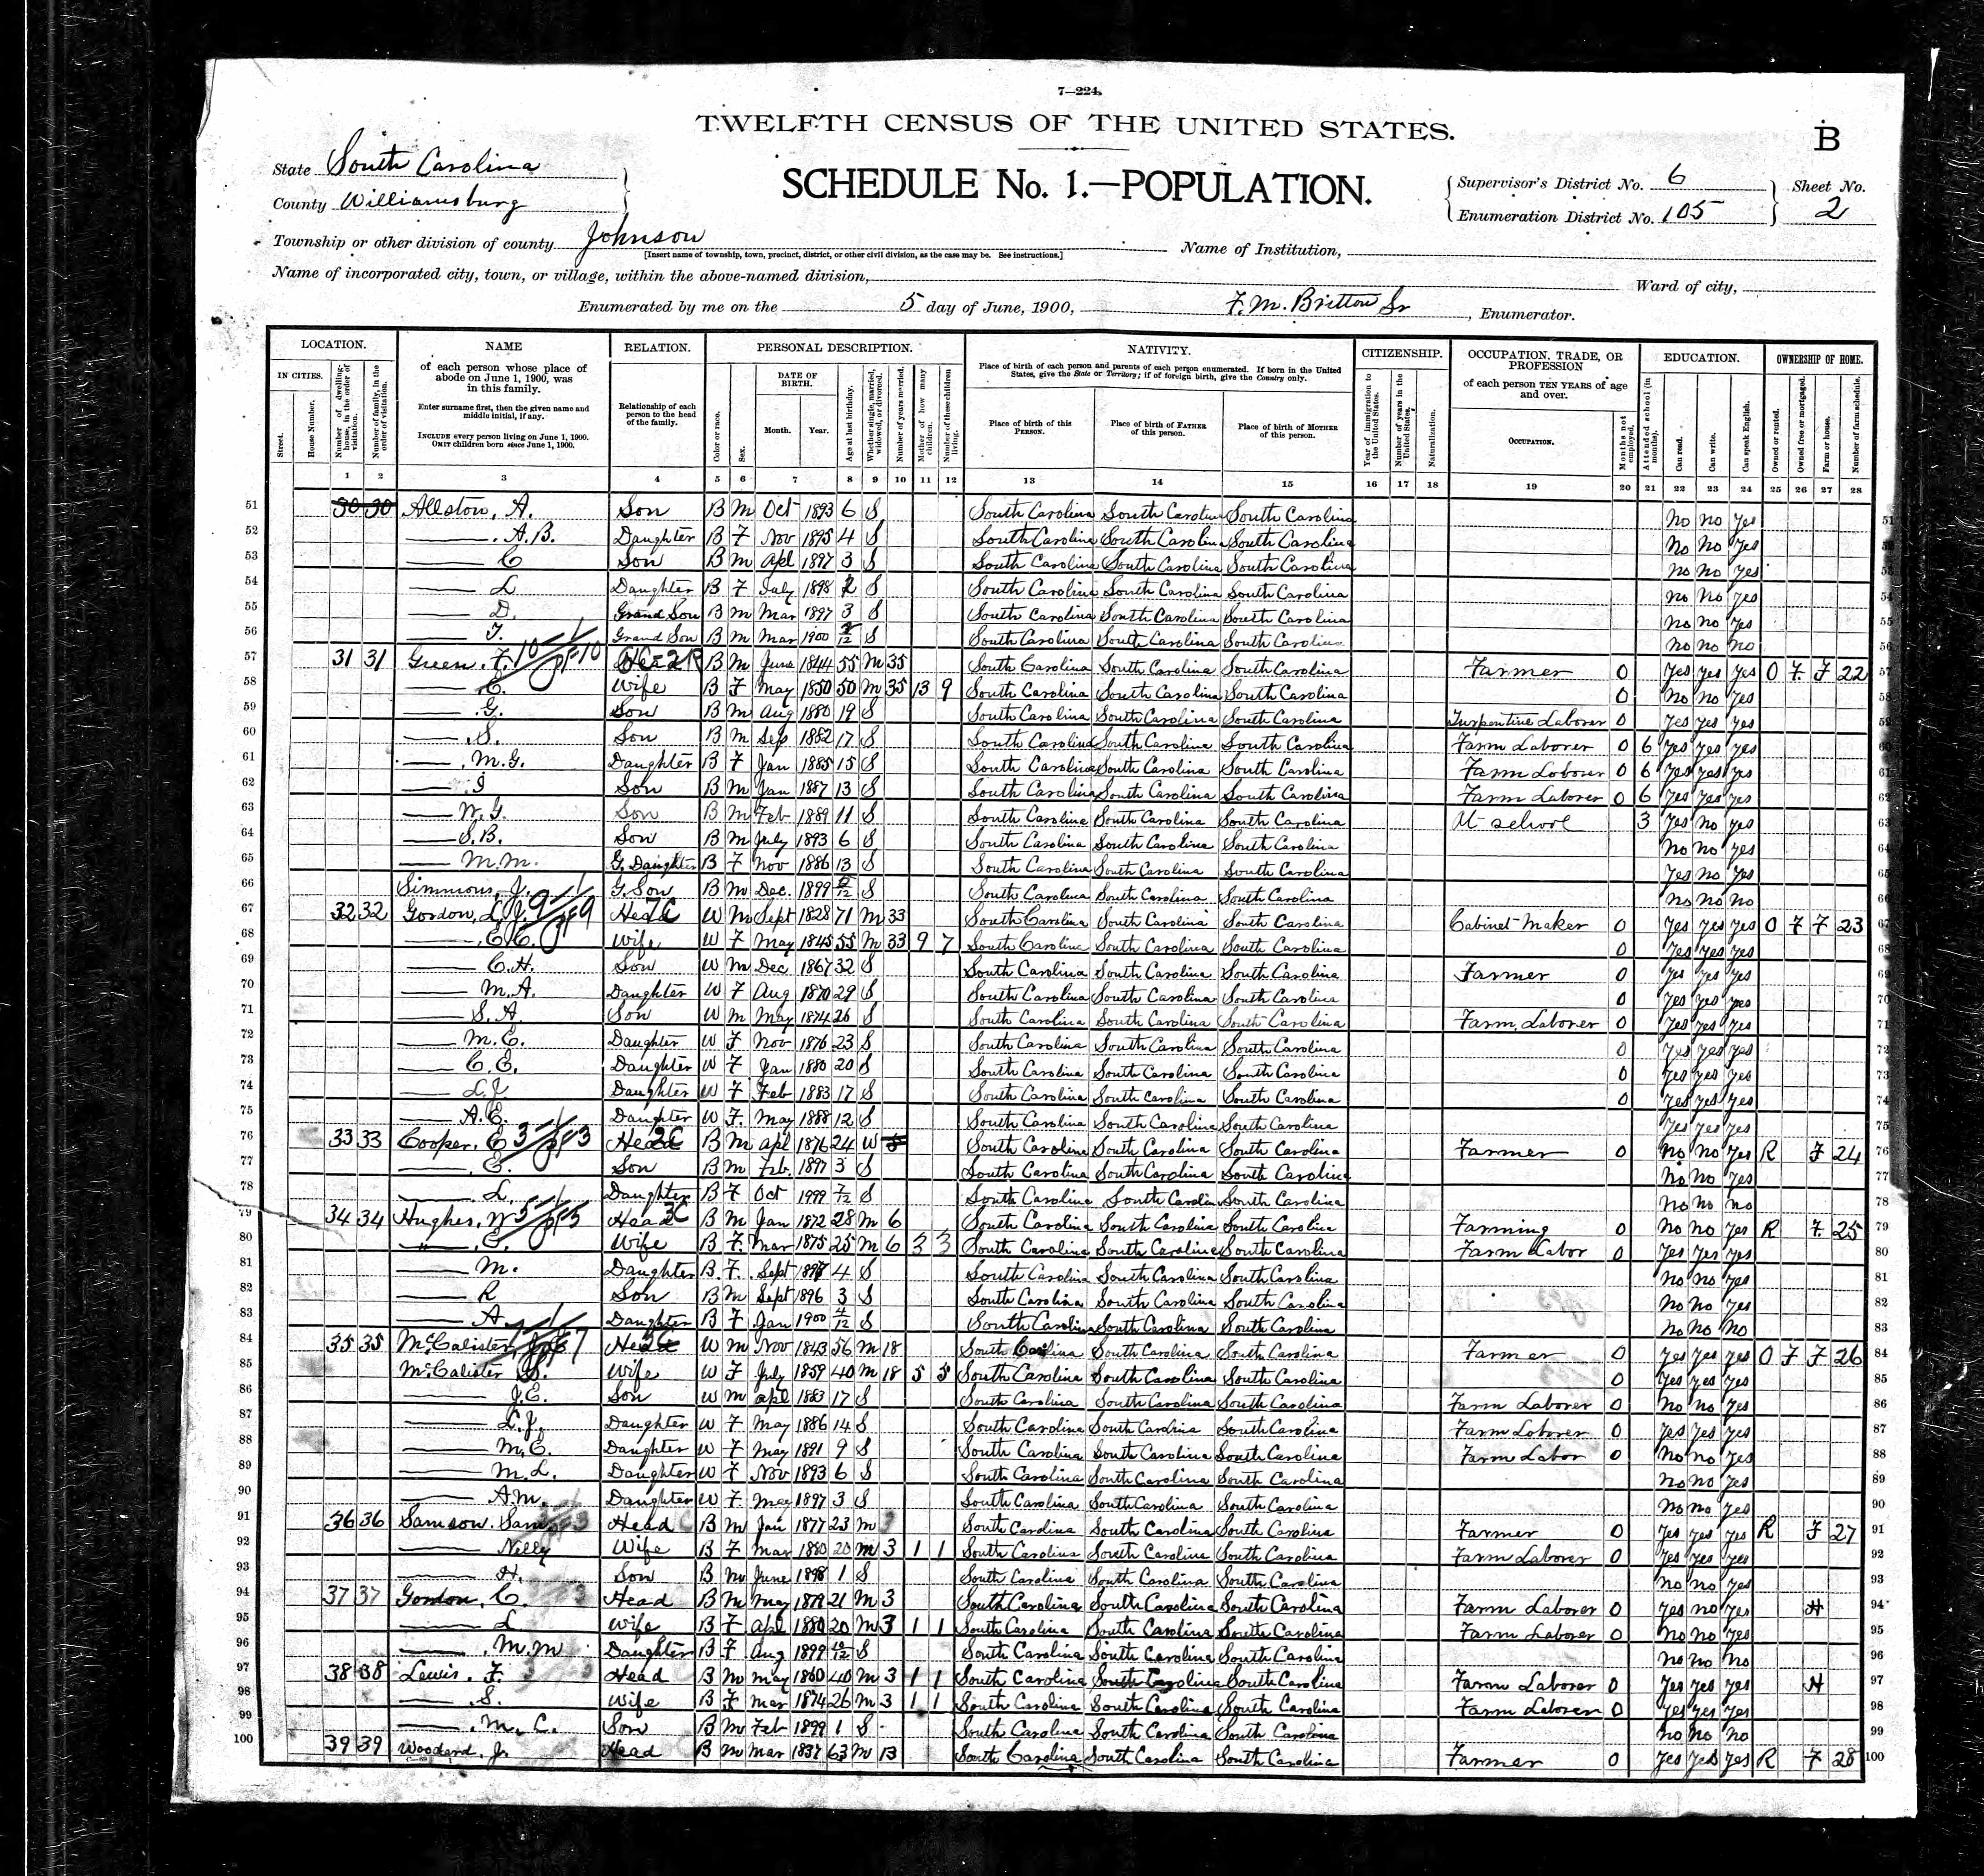 7—224
TWELFTH CENSUS OF THE UNITED STATES.
B
State South Carolina
County Williamsburg
SCHEDULE No. 1.—POPULATION.
Supervisor's District No. 6
Enumeration District No. 105
Sheet No. 2
Township or other division of county Johnson
[Insert name of township, town, precinct, district, or other civil division, as the case may be. See instructions.]
Name of Institution,
Name of incorporated city, town, or village, within the above-named division,
Ward of city,
Enumerated by me on the 5 day of June, 1900, F. M. Britton Sr, Enumerator.
LOCATION. NAME RELATION. PERSONAL DESCRIPTION. NATIVITY. CITIZENSHIP. OCCUPATION, TRADE, OR PROFESSION EDUCATION. OWNERSHIP OF HOME.
IN CITIES. Street. House Number. Number of dwelling-house, in the order of visitation. Number of family, in the order of visitation.
of each person whose place of abode on June 1, 1900, was in this family.
Enter surname first, then the given name and middle initial, if any.
INCLUDE every person living on June 1, 1900.
OMIT children born since June 1, 1900.
Relationship of each person to the head of the family.
Color or race. Sex. DATE OF BIRTH. Month. Year. Age at last birthday. Whether single, married, widowed, or divorced. Number of years married. Mother of how many children. Number of these children living.
Place of birth of each person and parents of each person enumerated. If born in the United States, give the State or Territory; if of foreign birth, give the Country only.
Place of birth of this PERSON. Place of birth of FATHER of this person. Place of birth of MOTHER of this person.
Year of immigration to the United States. Number of years in the United States. Naturalization.
of each person TEN YEARS of age and over.
OCCUPATION. Months not employed. Attended school (in months). Can read. Can write. Can speak English. Owned or rented. Owned free or mortgaged. Farm or house. Number of farm schedule.
1 2 3 4 5 6 7 8 9 10 11 12 13 14 15 16 17 18 19 20 21 22 23 24 25 26 27 28
51 30 30 Allston, A. Son B M Oct 1893 6 S South Carolina South Carolina South Carolina No No Yes 51
52 A. B. Daughter B F Nov 1895 4 S South Carolina South Carolina South Carolina No No Yes 52
53 C Son B M Apl 1897 3 S South Carolina South Carolina South Carolina No No Yes 53
54 L Daughter B F July 1898 S South Carolina South Carolina South Carolina No No Yes 54
55 D. Grand Son B M Mar 1897 3 S South Carolina South Carolina South Carolina No No Yes 55
56 Grand Son B M Mar 1900 2/12 S South Carolina South Carolina South Carolina No No No 56
57 31 31 Green, F. Head B M June 1844 55 M 35 South Carolina South Carolina South Carolina Farmer 0 Yes Yes Yes O F F 22 57
58 C. Wife B F May 1850 50 M 35 13 9 South Carolina South Carolina South Carolina 0 No No Yes 58
59 G. Son B M Aug 1880 19 S South Carolina South Carolina South Carolina Turpentine Laborer 0 Yes Yes Yes 59
60 S. Son B M Sep 1882 17 S South Carolina South Carolina South Carolina Farm Laborer 0 6 Yes Yes Yes 60
61 M. G. Daughter B F Jan 1885 15 S South Carolina South Carolina South Carolina Farm Laborer 0 6 Yes Yes Yes 61
62 I Son B M Jan 1887 13 S South Carolina South Carolina South Carolina Farm Laborer 0 6 Yes Yes Yes 62
63 W. G. Son B M Feb 1889 11 S South Carolina South Carolina South Carolina At school 3 Yes No Yes 63
64 S. B. Son B M July 1893 6 S South Carolina South Carolina South Carolina No No Yes 64
65 M. M. G. Daughter B F Nov 1886 13 S South Carolina South Carolina South Carolina Yes No Yes 65
66 Simmons, J. G. Son B M Dec. 1899 S South Carolina South Carolina South Carolina No No No 66
67 32 32 Gordon, L. J. Head W M Sept 1828 71 M 33 South Carolina South Carolina South Carolina Cabinet Maker 0 Yes Yes Yes O F F 23 67
68 E. C. Wife W F May 1845 55 M 33 9 7 South Carolina South Carolina South Carolina 0 Yes Yes Yes 68
69 C. H. Son W M Dec 1867 32 S South Carolina South Carolina South Carolina Farmer 0 Yes Yes Yes 69
70 M. A. Daughter W F Aug 1870 29 S South Carolina South Carolina South Carolina 0 Yes Yes Yes 70
71 S. A. Son W M May 1874 26 S South Carolina South Carolina South Carolina Farm Laborer 0 Yes Yes Yes 71
72 M. E. Daughter W F Nov 1876 23 S South Carolina South Carolina South Carolina 0 Yes Yes Yes 72
73 C. E. Daughter W F Jan 1880 20 S South Carolina South Carolina South Carolina 0 Yes Yes Yes 73
74 L. J. Daughter W F Feb 1883 17 S South Carolina South Carolina South Carolina 0 Yes Yes Yes 74
75 A. E. Daughter W F May 1888 12 S South Carolina South Carolina South Carolina Yes Yes Yes 75
76 33 33 Cooper, C Head B M Apl 1876 24 W South Carolina South Carolina South Carolina Farmer 0 No No Yes R F 24 76
77 E. Son B M Feb. 1897 3 S South Carolina South Carolina South Carolina No No Yes 77
78 L. Daughter B F Oct 1999 7/12 S South Carolina South Carolina South Carolina No No No 78
79 34 34 Hughes, W Head B M Jan 1872 28 M 6 South Carolina South Carolina South Carolina Farming 0 No No Yes R F 25 79
80 " C. Wife B F Mar 1875 25 M 6 3 3 South Carolina South Carolina South Carolina Farm Labor 0 Yes Yes Yes 80
81 M. Daughter B F Sept 4 S South Carolina South Carolina South Carolina No No Yes 81
82 R Son B M Sept 1896 3 S South Carolina South Carolina South Carolina No No Yes 82
83 A. Daughter B F Jan 1900 4/12 S South Carolina South Carolina South Carolina No No No 83
84 35 35 McCalister, Head W M Nov 1843 56 M 18 South Carolina South Carolina South Carolina Farmer 0 Yes Yes Yes O F F 26 84
85 McCalister S. Wife W F July 1859 40 M 18 5 5 South Carolina South Carolina South Carolina 0 Yes Yes Yes 85
86 J. E. Son W M Apl 1883 17 S South Carolina South Carolina South Carolina Farm Laborer 0 No No Yes 86
87 L. J. Daughter W F May 1886 14 S South Carolina South Carolina South Carolina Farm Laborer 0 Yes Yes Yes 87
88 M. C. Daughter W F May 1891 9 S South Carolina South Carolina South Carolina Farm Labor 0 No No Yes 88
89 M. L. Daughter W F Nov 1893 6 S South Carolina South Carolina South Carolina No No Yes 89
90 A. M. Daughter W F May 1897 3 S South Carolina South Carolina South Carolina No No Yes 90
91 36 36 Samson, Sam Head B M Jan 1877 23 M 3 South Carolina South Carolina South Carolina Farmer 0 Yes Yes Yes R F 27 91
92 Nelly Wife B F Mar 1880 20 M 3 1 1 South Carolina South Carolina South Carolina Farm Laborer 0 Yes Yes Yes 92
93 H. Son B M June 1898 1 S South Carolina South Carolina South Carolina No No Yes 93
94 37 37 Gordon, C. Head B M May 1879 21 M 3 South Carolina South Carolina South Carolina Farm Laborer 0 Yes No Yes H 94
95 L Wife B F Apl 1880 20 M 3 1 1 South Carolina South Carolina South Carolina Farm Laborer 0 No No Yes 95
96 M. M Daughter B F Aug 1899 S South Carolina South Carolina South Carolina No No No 96
97 38 38 Lewis, F. Head B M May 1860 40 M 3 1 1 South Carolina South Carolina South Carolina Farm Laborer 0 Yes Yes Yes H 97
98 S. Wife B F Mar 1874 26 M 3 1 1 South Carolina South Carolina South Carolina Farm Laborer 0 Yes Yes Yes 98
99 M. C. Son B M Feb 1899 1 S South Carolina South Carolina South Carolina No No No 99
100 39 39 Woodard, J. Head B M Mar 1837 63 M 13 South Carolina South Carolina South Carolina Farmer 0 Yes Yes Yes R F 28 100